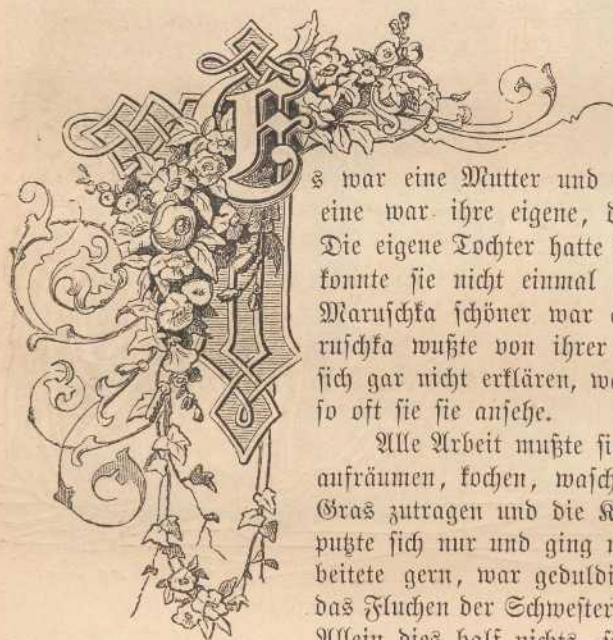 Es war eine Mutter und
eine war ihre eigene, d
Die eigene Tochter hatte
konnte sie nicht einmal
Maruschka schöner war
ruschka wußte von ihrer
sich gar nicht erklären, w
so oft sie sie ansehe.
Alle Arbeit mußte si
aufräumen, kochen, wasch
Gras zutragen und die K
putzte sich nur und ging
beitete gern, war geduldi
das Fluchen der Schwester
Allein dies half nichts